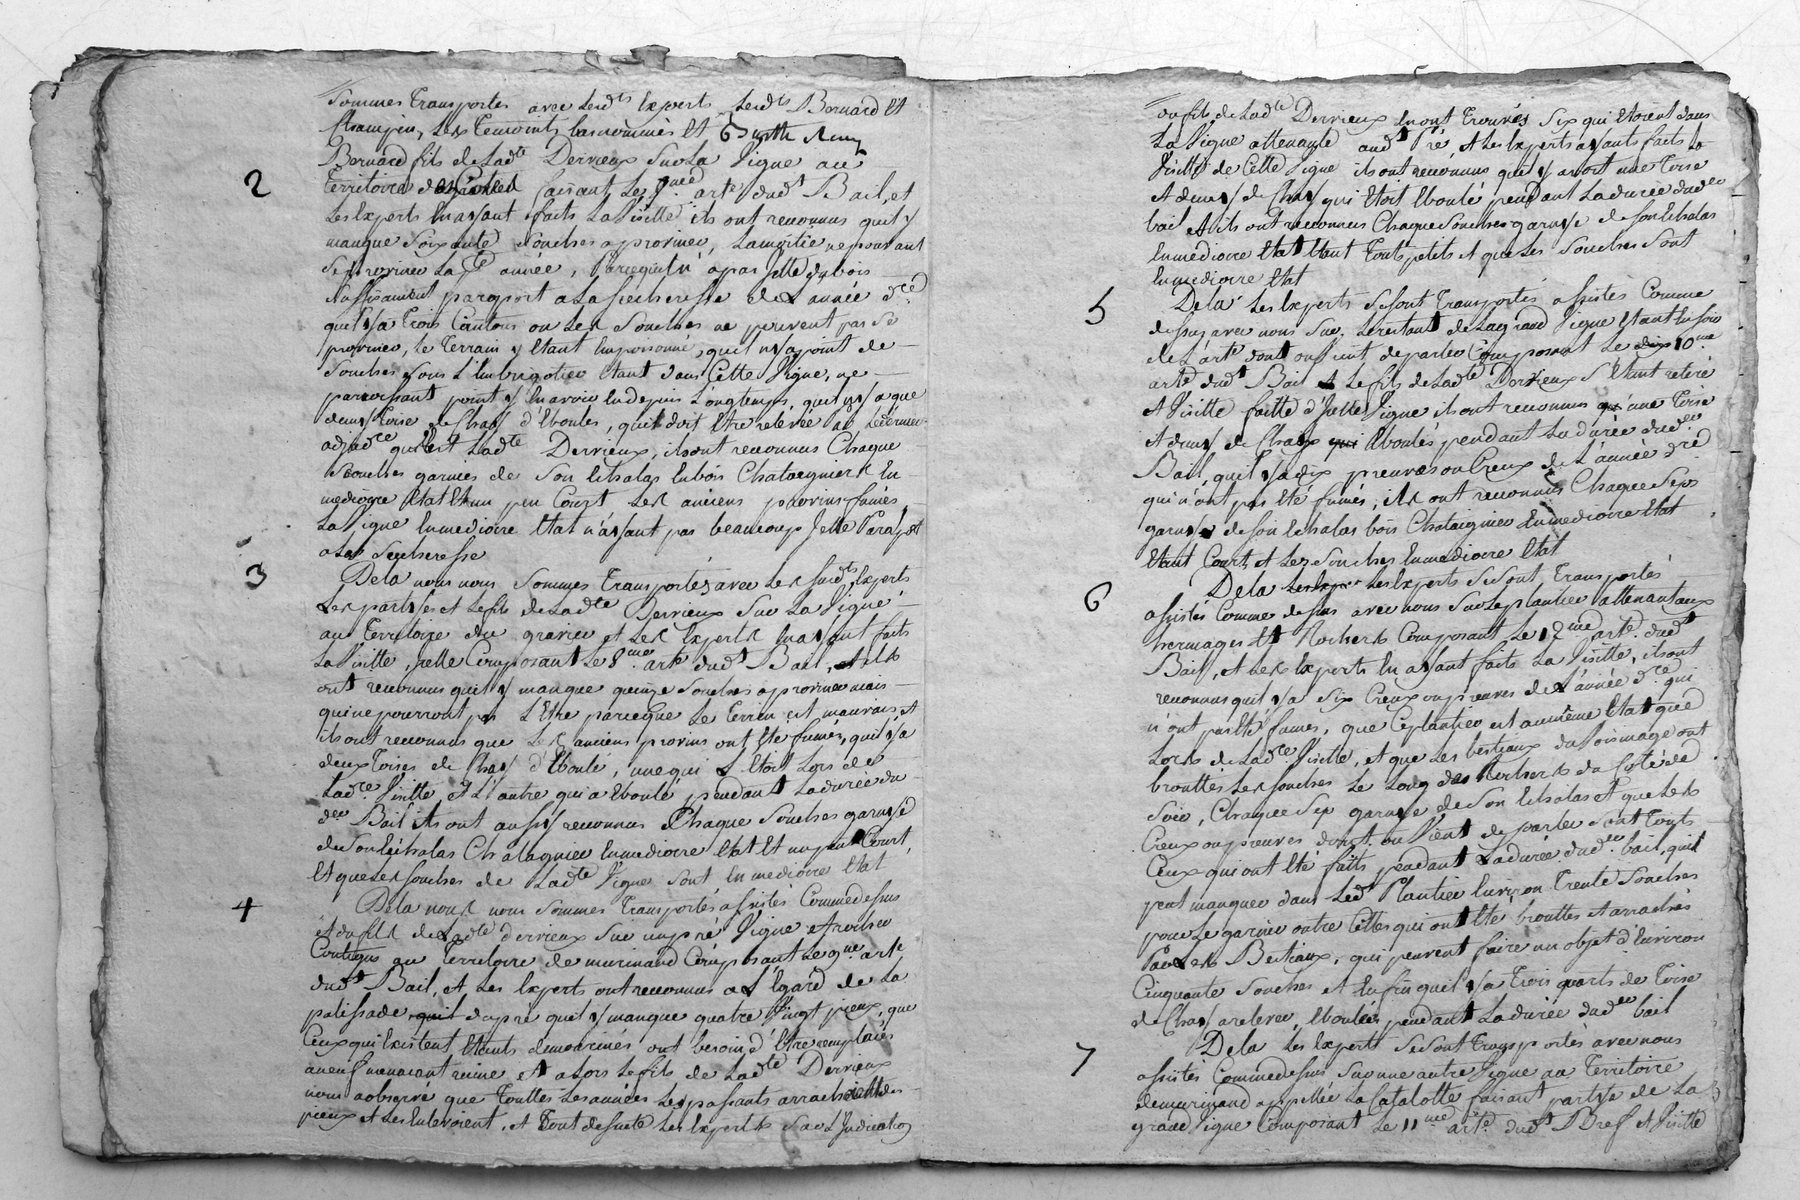 Sommes Transportes avec lesdts Experts lesdts Bernard Et
Champin, Les Temoints basnommés Et
Bernard fils de Ladte Dervieux Sur La Vigne au
2
Territoire faisant Le arte dudt Bail, et
Les Experts En ayant faits La Visitte ils ont reconnus quil y
manque Soixante Souches a proviner, La moitie ne pouvant
Se proviner La année, Parcequil n'a pas Jetté du bois
Suffisament parraport a La Secheresse de L'année dre
quil y a Trois Cantons ou Les Souches ne peuvent pas Se
proviner, Le Terrain y Etant Empoisonné, quil ny a point de
Souches Sous L'Embrigotier Etant dans Cette Vigne, ne
paroissant point y En avoir Eu depuis Longtemps, quil ny a que
deux Toise de Chas d'Eboulés, quil doit Etre relévée au
adjudre qu'Est Ladte Dervieux, ils ont reconnus Chaque
Souches garnies de Son Echalas En bois Chataignier En
mediocre Etat Et un peu Court Les anciens provins fumés
La Vigne En mediocre Etat n'ayant pas beaucoup Jetté Paraport
a La Secheresse
3
De La nous nous Sommes Transportés avec Les Susdts Experts
Les partyes et Le fils de Ladte Dervieux Sur La Vigne
au Territoire du gravier et Les Experts En ayant faits
La Visitte, Icelle Composant Le 8me arte dudt Bail, Et ils
ont reconnus quil y manque quinze Souches a proviner mais
qui ne pourront pas L'Etre parceque Le Terrein est mauvais, et
ils ont reconnus que Les anciens provins ont Eté fumés, quil y a
deux Toises de Chas d'Eboulé, une qui L'Etoit Lors de
Ladte Visitte Et L'autre qui a Eboulé pendant La durée du
der Bail ils ont aussy reconnus Chaque Souches garnye
de Son Echalas Chataignier En mediocre Etat Et un peu Court,
Et que Les Souches de Ladte Vigne Sont En mediocre Etat
4
De La nous nous Sommes Transportés assistés Comme dessus
et du fils de Ladte dervieux Sur un pré Vigne et rocher
Contigus au Territoire de murinand Composant Le 9me arte
dudt Bail, Et Les Experts ont reconnus a L'Egard de La
palissade du pré quil y manque quatre Vingt pieux, que
Ceux qui Existent, Etants ont besoin d'Etre remplacés
a neuf menacant ruine Et a Lors Le fils de Ladte Dervieux
nous a observé que Touttes Les années Les passants arrachoient des
pieux Et Les Enlevoient, et Tout de Suite Les Experts Sur L'Indication
du fils de Ladte Dervieux En ont Trouvés Six qui Etoient dans
La Vigne attenante audt Pré Et Les Experts ayants faits La
Visitte de Cette Vigne ils ont reconnus quil y avoit une Toise
Et demy de Chas qui Etoit Eboulé pendant La durée dudr
bail Et ils ont reconnus Chaque Souches garnye de Son Echalas
En mediocre Etat Etant Tous petits et que Les Souches Sont
En mediocre Etat
5
De La Les Experts Se Sont Transportés assistés Comme
dessus avec nous Sur Le restant de La grand Vigne
de L'arte dont on Vient de parler Composant Le 10me
arte dudt Bail Le fils de Ladte Dervieux S'Etant retiré
Et Visitte faitte d'Icelle Vigne ils ont reconnus une Toise
Et demy de Chas Eboulés pendant La durée dudr
Bail, quil y a dix preuves ou Creux de L'année dre
qui n'ont pas Eté fumés, ils ont reconnus Chaque Seps
garnye de Son Echalas bois Chataignier En mediocre Etat
Etant Court et Les Souches En mediocre Etat
6
De La Les Experts Se Sont Transportés
assistés Comme dessus avec nous Sur Le plantier attenant aux
hermages Et Rochers Composant Le 12me arte dudt
Bail, et Les Experts En ayant faits La Visitte, ils ont
reconnus quil y a Six Creux ou preuves de L'année dre qui
n'ont pas Eté fumés, que Ce plantier est au même Etat que
Lors de Ladte Visitte, et que Les bestiaux du Voisinage ont
brouttés Les Souches Le Long des Rochers du Coté de
Soir, Chaque Sep garnye de Son Echalas Et que Les
Creux ou preuves dont on Vient de parler Sont Touts
Ceux qui ont Eté faits pendant La durée dudr bail, quil
peut manquer dans Ledt Plantier Environ Trente Souches
pour Le garnir outre Celles qui ont Eté brouttés Et arrachés
Par Les Bestiaux, qui peuvent faire un objet d'Environ
Cinquante Souches et Enfin quil y a Trois quarts de Toise
de Chas a relever Eboulées pendant La durée dudr bail
7
De La Les Experts Se Sont Transportés avec nous
assistés Comme dessus Sur une autre Vigne au Territoire
de murinand appellée La Catalotte faisant partye de La
grand Vigne Composant Le 11me arte dudt Bref et Visitte